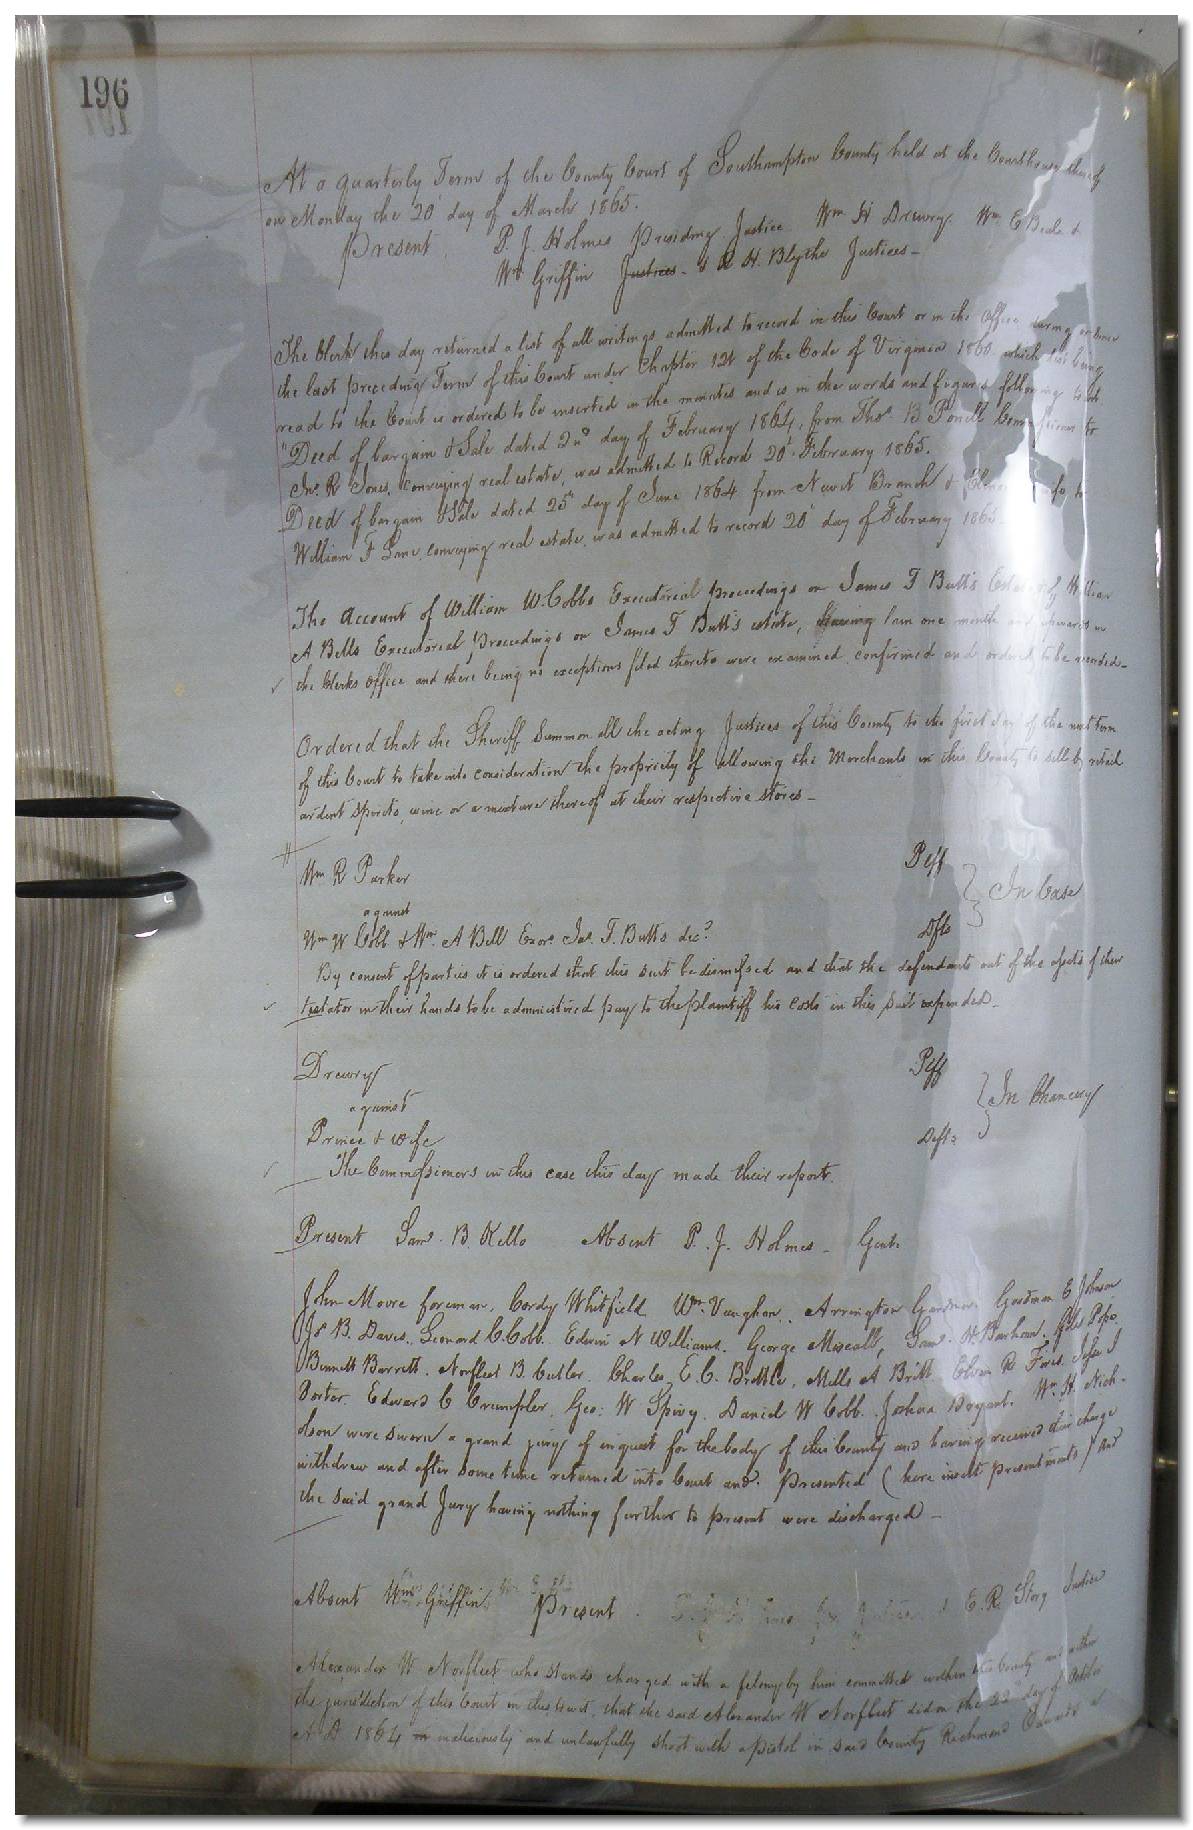 196
At a quarterly Term of the County Court of Southampton County held at the Courthouse thereof
on Monday the 20' day of March 1865.
Present P. J. Holmes Presiding Justice Wm H Drewry Wm E Beale &
Wm Griffin Justices - & R H. Blythe Justices -
The Clerk this day returned a list of all writings admitted to record in this Court or in the Office during
the last preceding Term of this Court under Chapter 121 of the Code of Virginia 1860 which list being
read to the Court is ordered to be inserted in the minutes and is in the words and figures following to wit
"Deed of bargain & Sale dated 2nd day of February 1864, from Thos. B Powell to
Jno. R Jones, conveying real estate, was admitted to Record 20' February 1865.
Deed of bargain & Sale dated 25th day of June 1864 from Newit Branch & wife, to
William F Lane, conveying real estate, was admitted to record 20' day of February 1865
The account of William W. Cobbs Executorial proceedings on James T Butts Estate, & William
A Bells Executorial Proceedings on James T Butt's estate, Having lain one month and upwards in
the Clerks Office and there being no exceptions filed thereto were examined, confirmed and ordered to be recorded -
Ordered that the Sheriff Summon all the acting Justices of this County to the first day of the next term
of this Court to take into consideration the propriety of allowing the Merchants in this County to sell by retail
ardent Spirits, wine or a mixture thereof at their respective stores -
Wm R Parker Plff
against In Case
Wm W Cobb & Wm. A Bell Exors. Jas. T. Butts decd. Dfts
By consent of parties it is ordered that this suit be dismissed and that the defendants out of the assets of their
testator in their hands to be administered pay to the plaintiff his costs in this suit expended -
Drewry Plff
against In Chancery
Prince & wife Defts
The Commissioners in this case this day made their report.
Present Saml. B. Kello Absent P. J. Holmes - Gent.
John Moore foreman, Cordy Whitfield Wm. Vaughan, Arrington Gardner, Goodman E Johnson
Js B. Davis, Leonard C. Cobb. Edwin N Williams, George Maseall, Saml. H. Barham, Giles Pope
Bennett Barrett, Norfleet B. Cutler, Charles E. C. Brittle, Mills A Britt, R Fires John J
Porter, Edward C Crumpler, Geo: W Spivy, Daniel W Cobb, Joshua Bryant, Wm. H. Nich-
olson were sworn a grand jury of inquest for the body of this County and having received their charge
withdrew and after some time returned into Court and Presented (here insert presentments) And
the said grand Jury having nothing further to present were discharged -
Absent Wm Griffin Present E. R. Story Justice
Alexander W Norfleet who stands charged with a felony by him committed within this County and within
the jurisdiction of this Court in this to wit, that the said Alexander W Norfleet did on the 22nd day of October
A D 1864 maliciously and unlawfully shoot with a pistol in said County Richmond